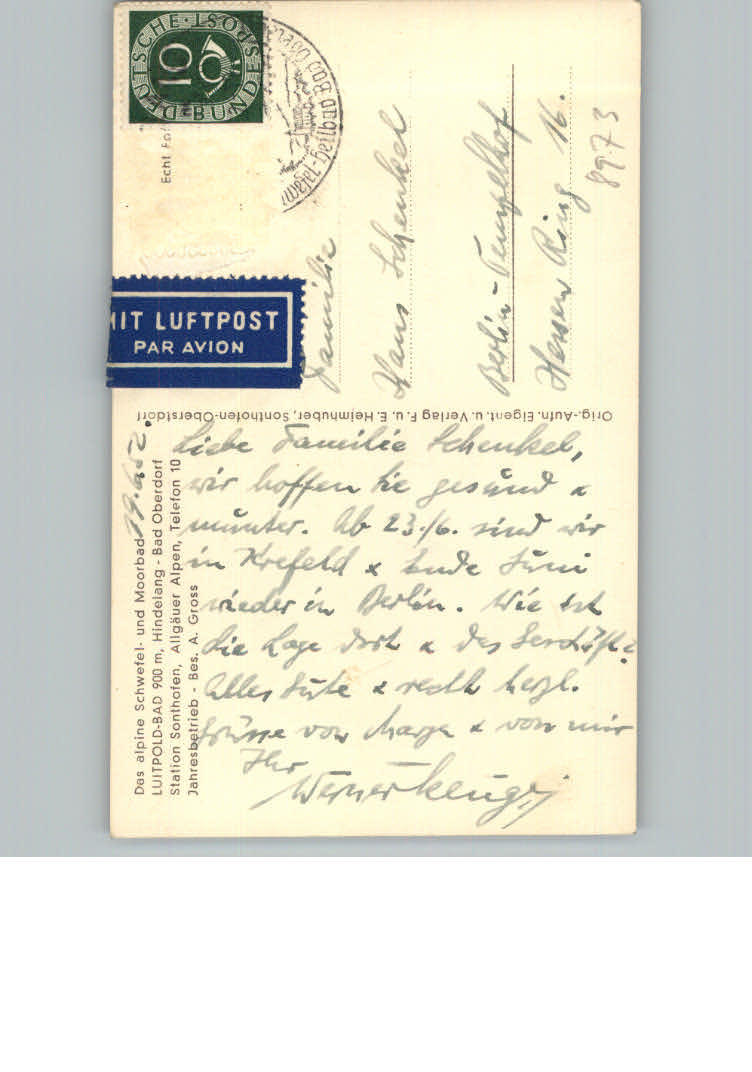 DEUTSCHE BUNDESPOST
10
Bad Oberd
Schwefel-Heilbad
Echt Fot
MIT LUFTPOST
PAR AVION
Familie
Hans Schenkel
Berlin-Tempelhof
Hessen Ring 16.
8973
Orig.-Aufn. Eigent. u. Verlag F. u. E. Heimhuber, Sonthofen-Oberstdorf
Das alpine Schwefel- und Moorbad
LUITPOLD-BAD 900 m, Hindelang - Bad Oberdorf
Station Sonthofen, Allgäuer Alpen, Telefon 10
Jahresbetrieb - Bes. A. Gross
19.6.52.
Liebe Familie Schenkel,
wir hoffen Sie gesund &
munter. Ab 23./6. sind wir
in Krefeld & Ende Juni
wieder in Berlin. Wie ist
die Lage dort & das Geschäft?
Alles Gute & recht herzl.
Grüsse von Marga & von mir
Ihr
Werner